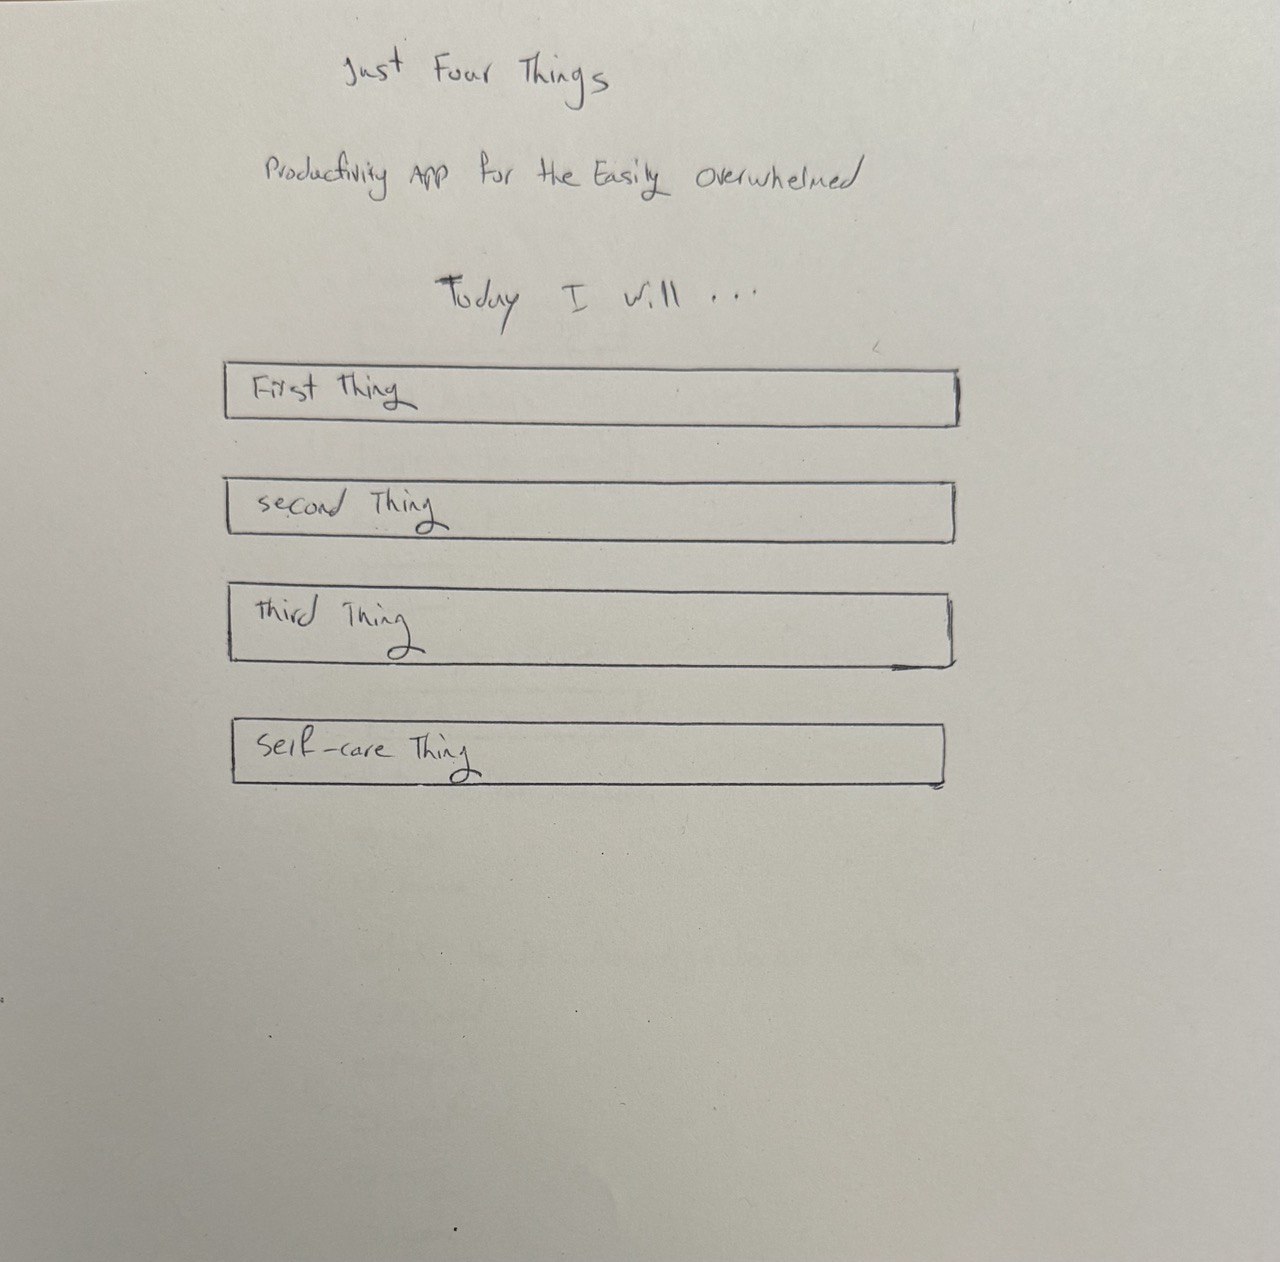 Just Four Things
Productivity App for the Easily Overwhelmed
Today I will ...
First Thing
second Thing
Third Thing
Self-care Thing